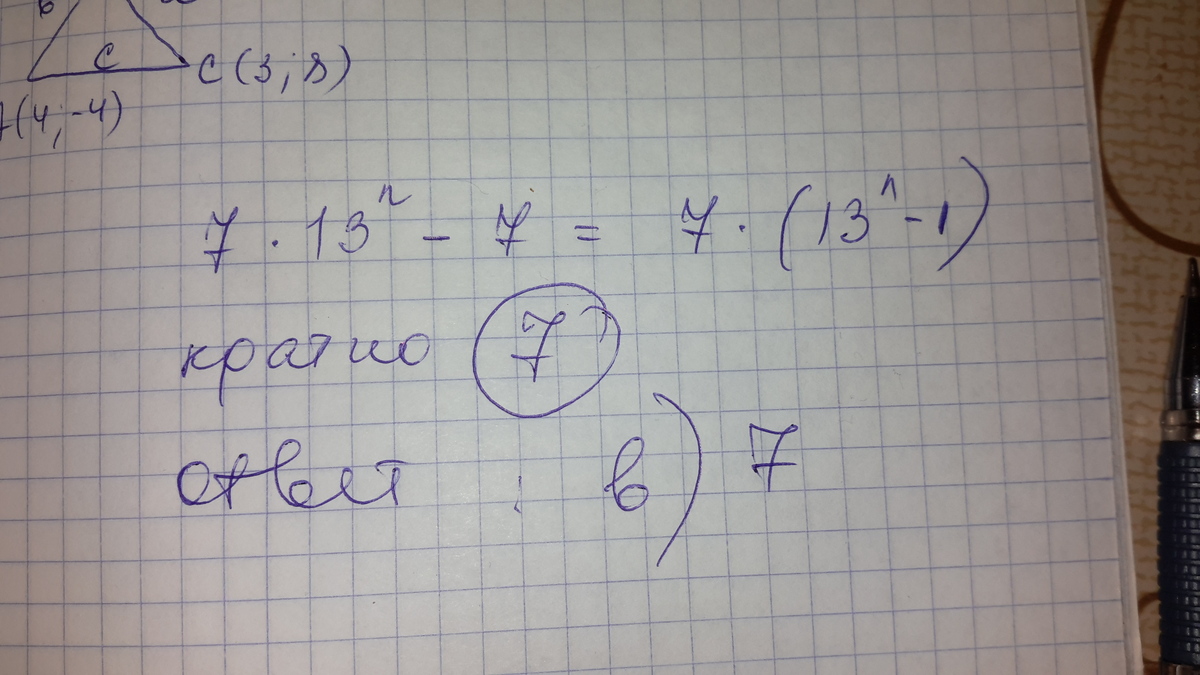 в
c
C(3;8)
A(4;-4)
7 · 13ⁿ - 7 = 7 · (13ⁿ - 1)
кратно 7
ответ : в) 7